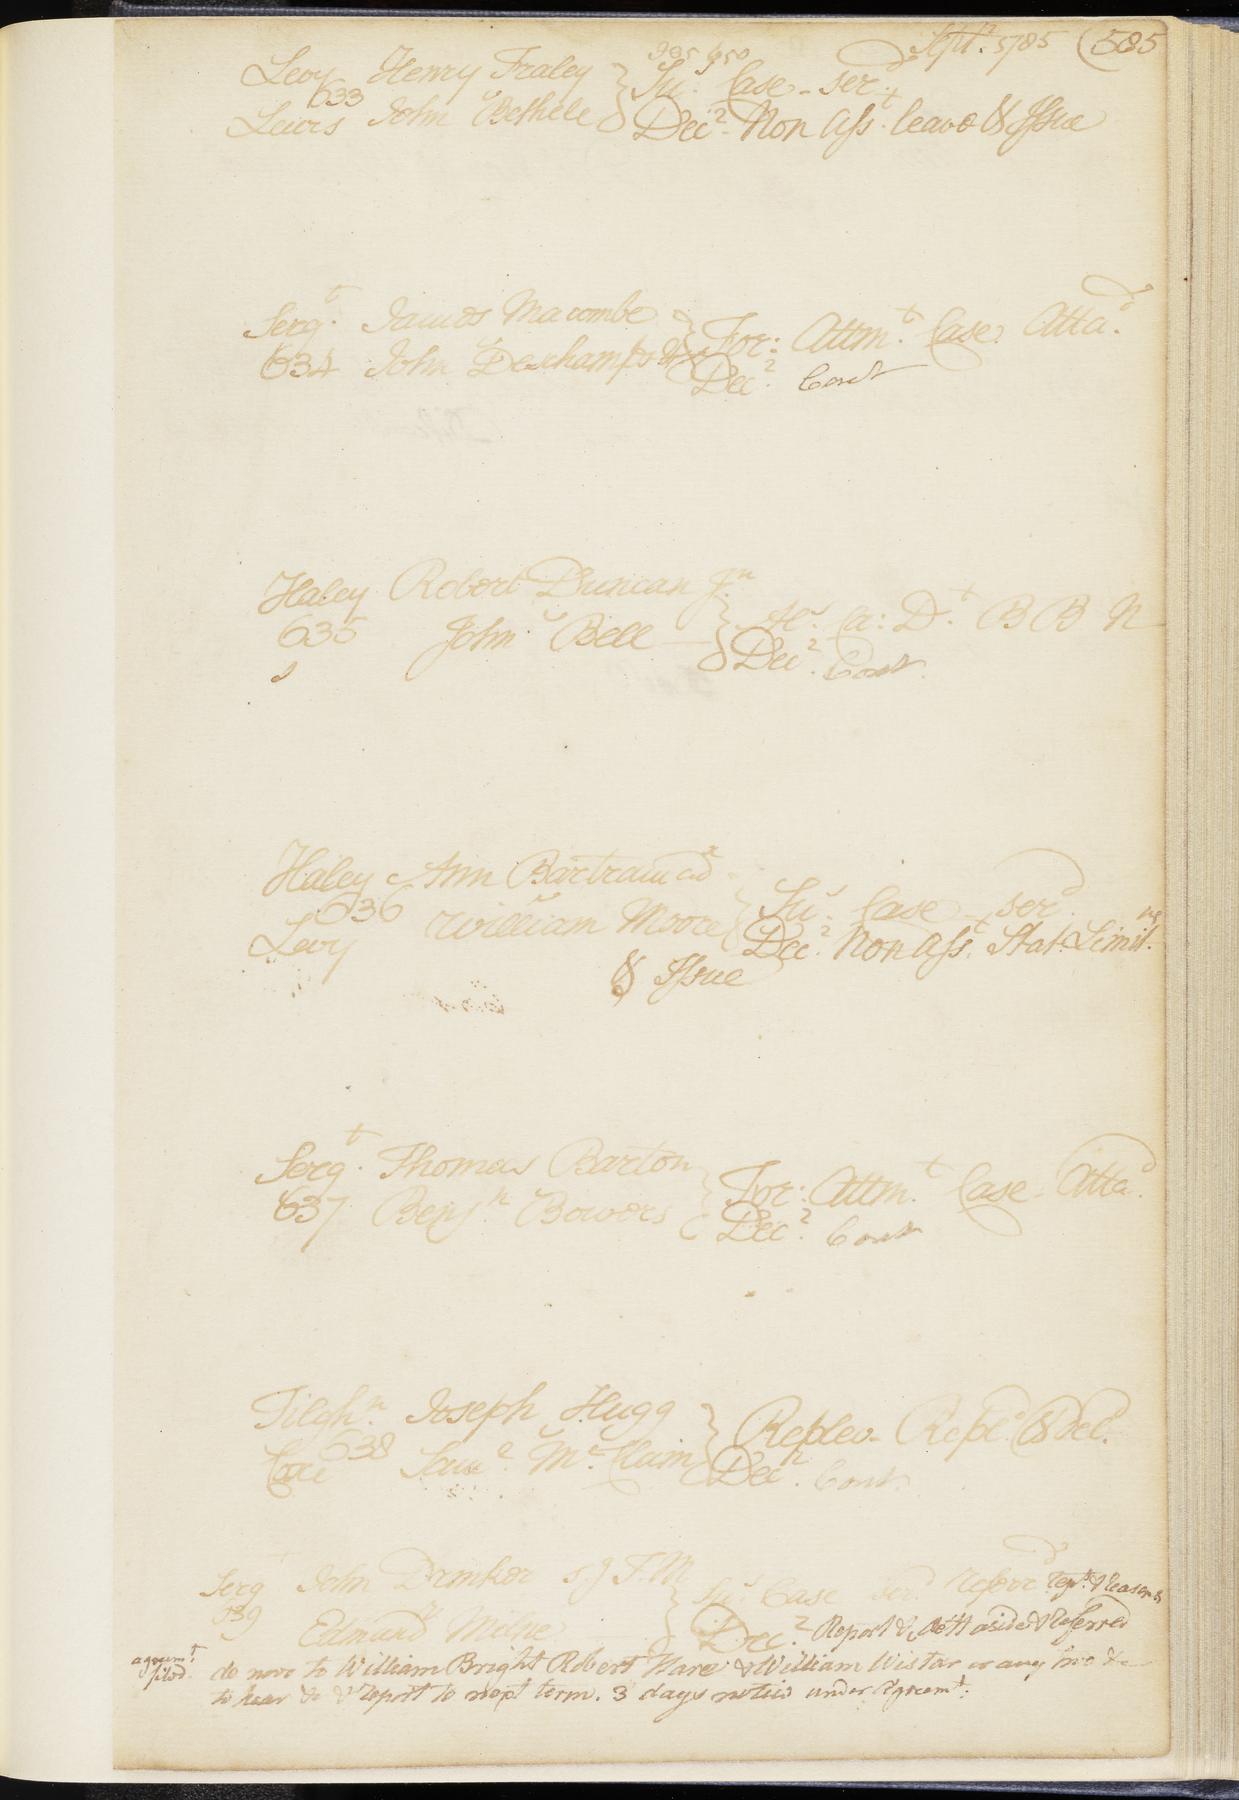 Sept.r 1785 (585
Levy Henry Fraley } Su.s Case - ser.d
633
Lewis John Bethell } Dec.r Non Ass.t leave & Issue
Serg.t James Macombe } For: Attm.t Case Atta.d
634 John Deschamps } Dec.r Cont
Haley Robert Duncan J.n
635 John v Bell } Su.s Ca: D.t B B N
s Dec.r Cont.
Haley Ann Bartram ad.x } Su.s Case ser.d
636
Levy William Moore } Dec.r Non Ass.t Stat. Limit.ns
& Issue
Serg.t Thomas Barton } For: Attm.t Case Atta.d
637 Benj.n Bowers } Dec.r Cont
Tilgh.n Joseph Hugg } Replev - Repl.d & Del.d
638
Coxe Sam.l McClain } Dec.r Cont.
Serg.t John Drinker s.g F.M } Su.s Case ser.d Referr.d
639 Edmund Milne } Dec.r Report & sett aside & Referred
agreem.t filed. de novo to William Bright Robert Hare & William Wistar or any two &c
to hear &c & Report to next term. 3 days notice under Agreem.t: